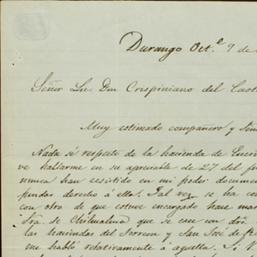 Durango Oct.e 9 de
Señor Lic. Don Crispiniano del Cast
Muy estimado compañero y
Nada sé respecto de la hacienda de
ve hablarme en su apreciable de 27 del
nunca han existido en mi poder documen
derecho a ella. Tal vez
con otro de que estuve encargado hace
de Chihuahua que se cree con
las haciendas del Torreon y San José de
me habló relativamente a aquella. Si V.